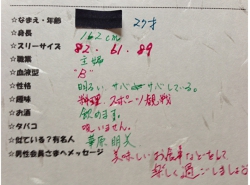 ☆なまえ・年齢 27才
☆身長 162cm
☆スリーサイズ 82. 61. 89
☆職業 主婦
☆血液型 "B"
☆性格 明るい サバサバしている。
☆趣味 料理 スポーツ観戦
☆お酒 飲めます。
☆タバコ 吸いません。
☆似ている?有名人 華原朋美
☆男性会員さまへメッセージ 美味しいお食事などをして
楽しく過ごしましょう